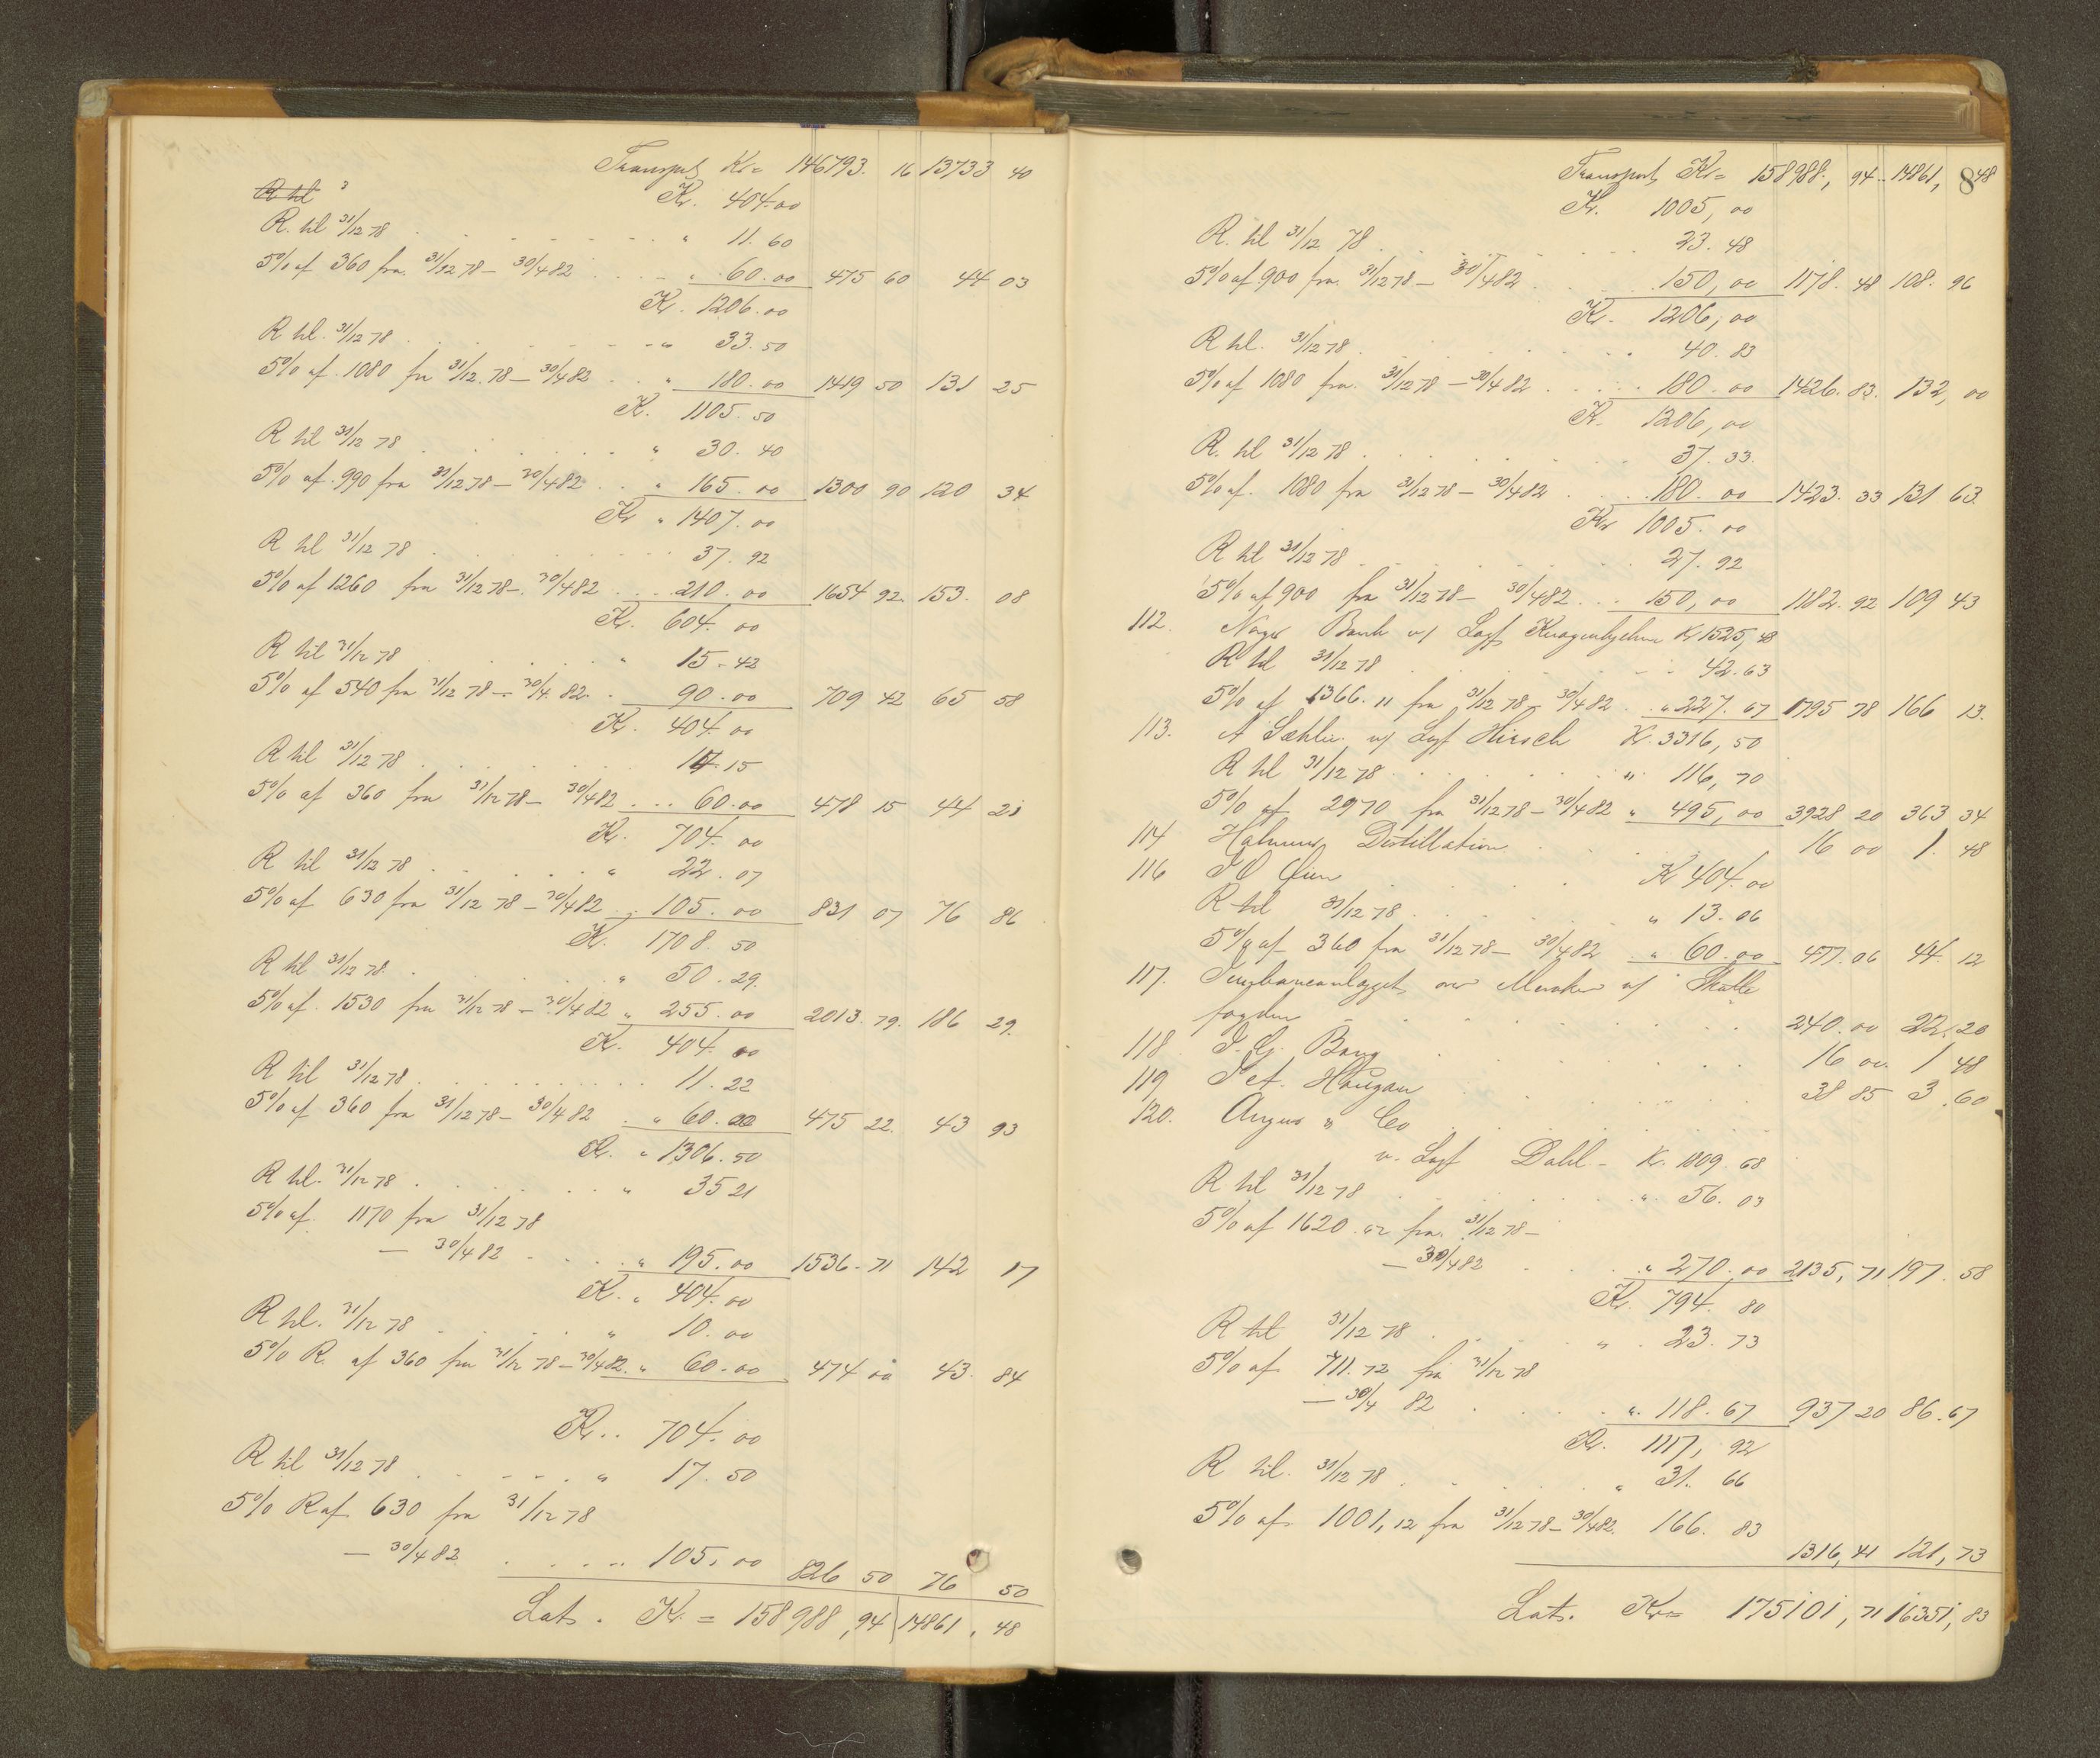 Transport Kr = 146793. 16 13733 40
R til
Kr. 404.00
R. til 31/12 78 " 11. 60
5% af 360 fra 31/12 78 – 30/4 82 " 60.00 475 60 44 03
Kr. 1206.00
R til. 31/12 78 " 33. 50
5% af. 1080 fra 31/12. 78 – 30/4 82 " 180.00 1419 50 131 25
Kr. 1105. 50
R til 31/12 78 " 30. 40
5% af. 990 fra 31/12 78 – 30/4 82 " 165.00 1300 90 120 34
Kr " 1407.00
R til 31/12 78 37. 92
5% af 1260 fra 31/12 78 – 30/4 82 210.00 1654 92. 153. 08
Kr. 604. 00
R til 31/12 78 " 15. 42
5% af 540 fra 31/12 78 – 30/4 82. 90.00 709 42 65 58
Kr. 404. 00
R til 31/12 78 14. 15
5% af 360 fra 31/12 78 – 30/4 82 60.00 478 15 44 21
Kr. 704. 00
R til 31/12 78 " 22. 07
5% af 630 fra 31/12 78 – 30/4 82 105. 00 831 07 76 86
Kr. 1708. 50
R til 31/12 78 " 50. 29.
5% af. 1530 fra 31/12 78 – 30/4 82 " 255.00 2013. 79. 186 29.
Kr. 404. 00
R til 31/12 78 11. 22
5% af 360 fra 31/12 78 – 30/4 82 " 60.00 475 22. 43 93
Kr. " 1306. 50
R til. 31/12 78 " 35 21
5% af. 1170 fra 31/12 78
– 30/4 82 " 195.00 1536. 71 142 17
Kr. " 404.00
R til. 31/12 78 " 10. 00
5% R. af 360 fra 31/12 78 – 30/4 82. " 60.00 474 00 43. 84
Kr. 704. 00
R til 31/12 78 " 17. 50
5% R af 630 fra 31/12 78
– 30/4 82 105,00 826 50 76 50
Lats. Kr. = 158988,94 14861. 48
Transport Kr = 158988, 94 14861, 48
8
Kr. 1005,00
R. til 31/12 78 23. 48
5% af 900 fra. 31/12 78 – 30/4 82 150,00 1178. 48 108. 96
Kr. 1206,00
R til. 31/12 78 40. 83
5% af 1080 fra. 31/12 78 – 30/4 82 180. 00 1426. 83. 132, 00
Kr. 1206,00
R. til 31/12 78 37. 33.
5% af. 1080 fra 31/12 78 – 30/4 82 180. 00 1423. 33 131 63.
Kr 1005. 00
R til 31/12 78 27. 92
5% af 900 fra 31/12 78 – 30/4 82 150,00 1182. 92 109 43
112. Norges Bank v/ Sagf Kr 1525,48
R til 31/12 78 42. 63
5% af 1366. 11 fra 31/12 78 – 30/4 82 " 227. 67 1795 78 166 13.
113. A Sæhlie v/ Sagf Hirsch Kr. 3316, 50
R til 31/12 78 " 116, 70
5% af 2970 fra 31/12 78 – 30/4 82 " 495,00 3928 20 363 34
114 Distillation 16 00 1. 48
116 Kr 404.00
R til 31/12 78 " 13. 06
5% af 360 fra 31/12 78 – 30/4 82 " 60.00 477.06 44. 12
117. Jernbaneanlægget over Meraker v/ Skatte
fogden 240.00 22. 20
118 Bang 16 00. 1 48
119 Pet. Haugan 38 85 3. 60
120. & Co
v. Sagf Dahl – Kr. 1809. 68
R til 31/12 78 " 56. 03
5% af 1620. fra. 31/12 78 –
– 30/4 82 " 270.00 2135, 71 197. 58
Kr. 794. 80
R til 31/12 78 " 23. 73
5% af 711. 72 fra 31/12 78
– 30/4 82 " 118. 67 937 20 86. 67
Kr. 1117, 92
R til. 31/12 78 " 31. 66
5% af 1001,12 fra 31/12 78 – 30/4 82. 166. 83
1316, 41 121, 73
Lats. Kr = 175101, 71 16351, 83